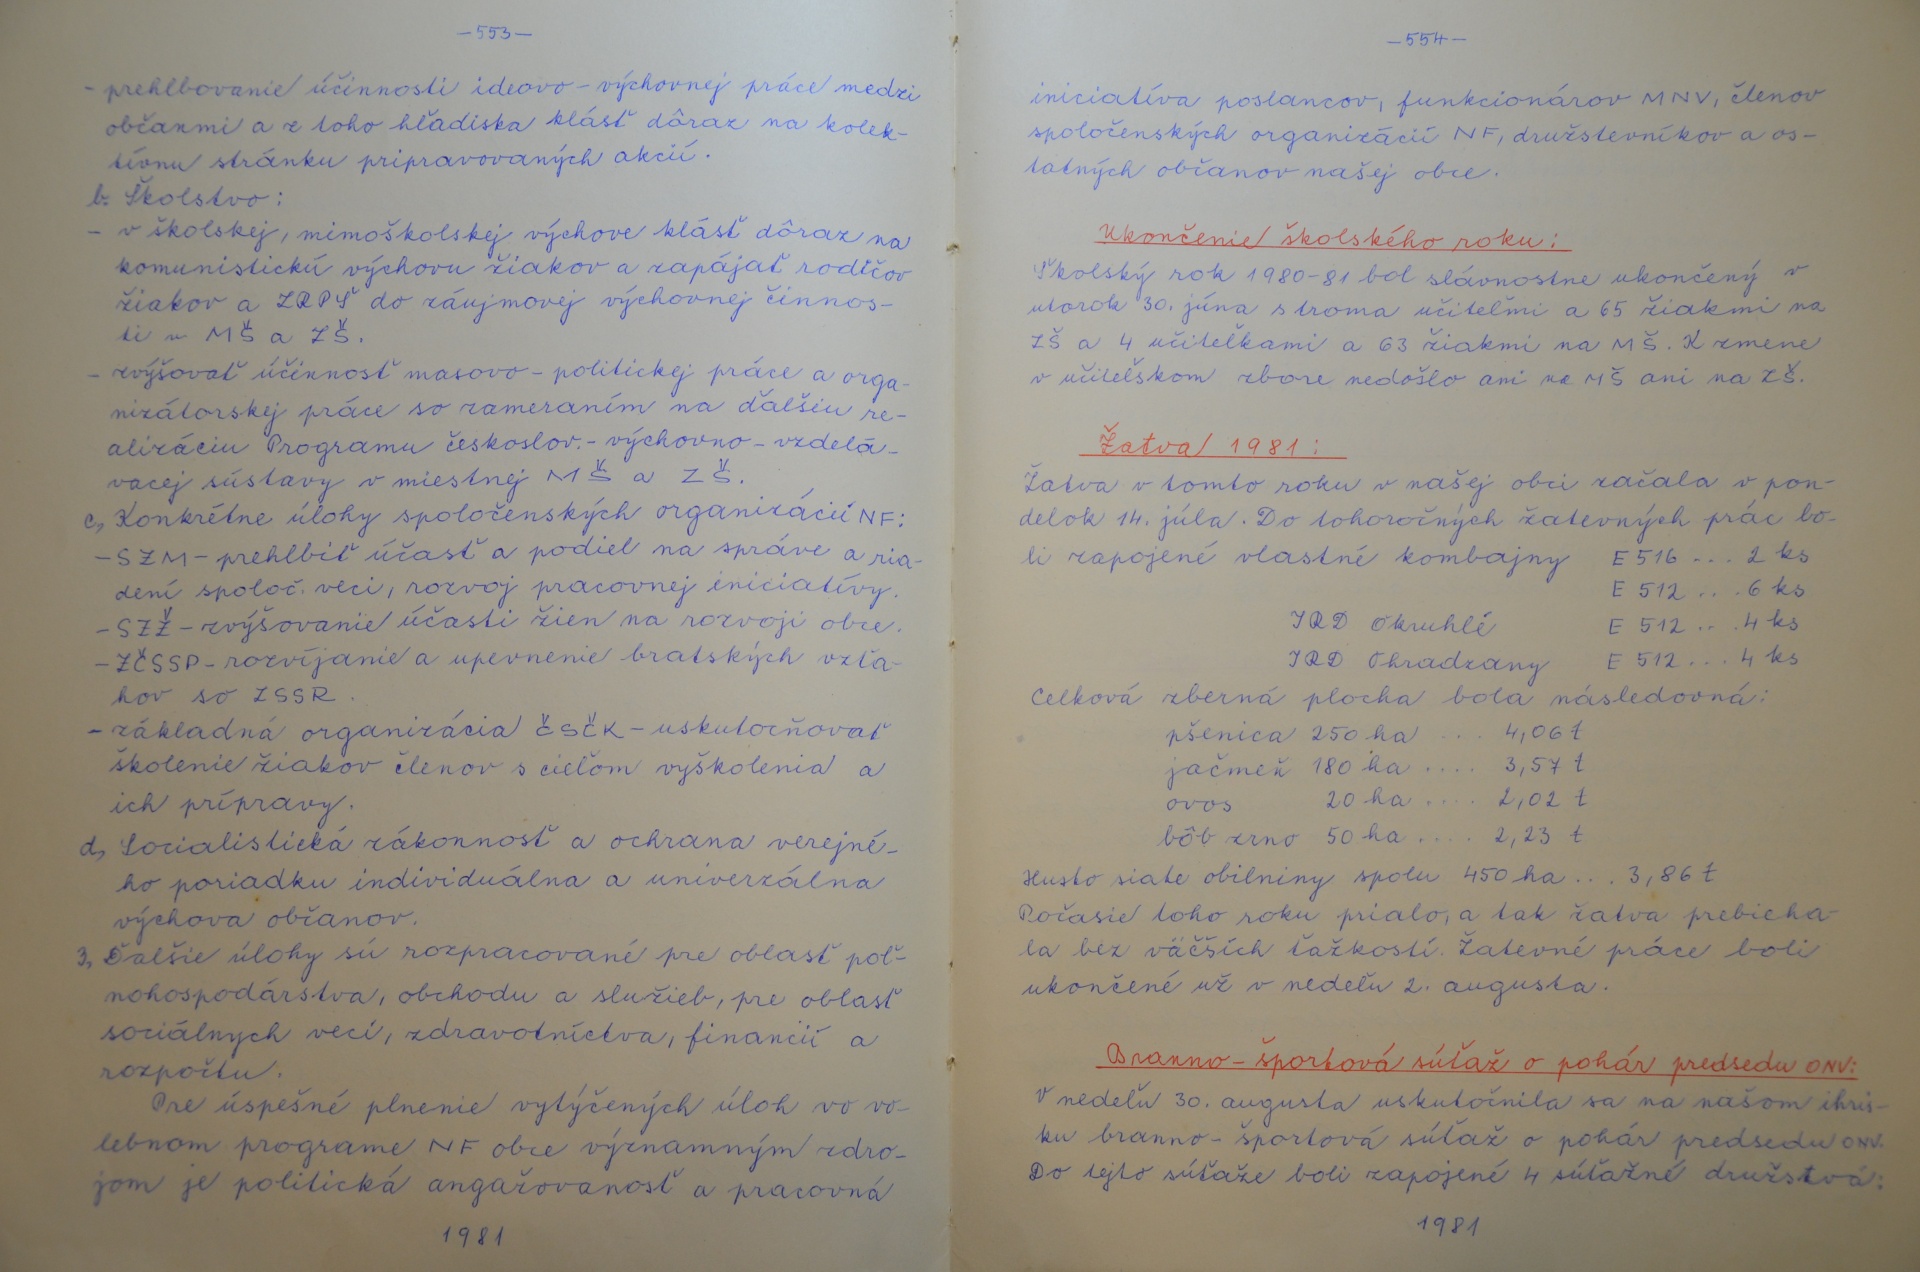 -553-
- prehlbovanie účinnosti ideovo-výchovnej práce medzi
občanmi a z toho hľadiska klásť dôraz na kolek-
tívnu stránku pripravovaných akcií.
b. Školstvo:
- v školskej, mimoškolskej výchove klásť dôraz na
komunistickú výchovu žiakov a zapájať rodičov
žiakov a ZRPŠ do záujmovej výchovnej činnos-
ti v MŠ a ZŠ.
- zvýšovať účinnosť masovo-politickej práce a orga-
nizátorskej práce so zameraním na ďalšiu re-
alizáciu Programu českoslov.-výchovno-vzdelá-
vacej sústavy v miestnej MŠ a ZŠ.
c, Konkrétne úlohy spoločenských organizácií NF:
-SZM-prehlbiť účasť a podiel na správe a ria-
dení spoloč. vecí, rozvoj pracovnej iniciatívy.
-SZŽ-zvýšovanie účasti žien na rozvoji obce.
-ZČSSP-rozvíjanie a upevnenie bratských vzťa-
hov so ZSSR.
-základná organizácia ČSČK-uskutočňovať
školenie žiakov členov s cieľom vyškolenia a
ich prípravy.
d, Socialistická zákonnosť a ochrana verejné-
ho poriadku individuálna a univerzálna
výchova občanov.
3, Ďalšie úlohy sú rozpracované pre oblasť poľ-
nohospodárstva, obchodu a služieb, pre oblasť
sociálnych vecí, zdravotníctva, financií a
rozpočtu.
Pre úspešné plnenie vytýčených úloh vo vo-
lebnom programe NF obce významným zdro-
jom je politická angažovanosť a pracovná
1981
-554-
iniciatíva poslancov, funkcionárov MNV, členov
spoločenských organizácií NF, družstevníkov a os-
tatných občanov našej obce.
Ukončenie školského roku:
Školský rok 1980-81 bol slávnostne ukončený v
utorok 30. júna s troma učiteľmi a 65 žiakmi na
ZŠ a 4 učiteľkami a 63 žiakmi na MŠ. K zmene
v učiteľskom zbore nedošlo ani na MŠ ani na ZŠ.
Žatva 1981:
Žatva v tomto roku v našej obci začala v pon-
delok 14. júla. Do tohoročných žatevných prác bo-
li zapojené vlastné kombajny E 516 ... 2 ks
E 512 ... 6 ks
JRD Okruhlé E 512 ... 4 ks
JRD Ohradzany E 512 ... 4 ks
Celková zberná plocha bola následovná:
pšenica 250 ha .... 4,06 t
jačmeň 180 ha .... 3,57 t
ovos 20 ha .... 2,02 t
bôb zrno 50 ha .... 2,23 t
Husto siate obilniny spolu 450 ha ... 3,86 t
Počasie toho roku prialo, a tak žatva prebieha-
la bez väčších ťažkostí. Žatevné práce boli
ukončené už v nedeľu 2. augusta.
Branno-športová súťaž o pohár predsedu ONV:
V nedeľu 30. augusta uskutočnila sa na našom ihris-
ku branno-športová súťaž o pohár predsedu ONV.
Do tejto súťaže boli zapojené 4 súťažné družstvá:
1981